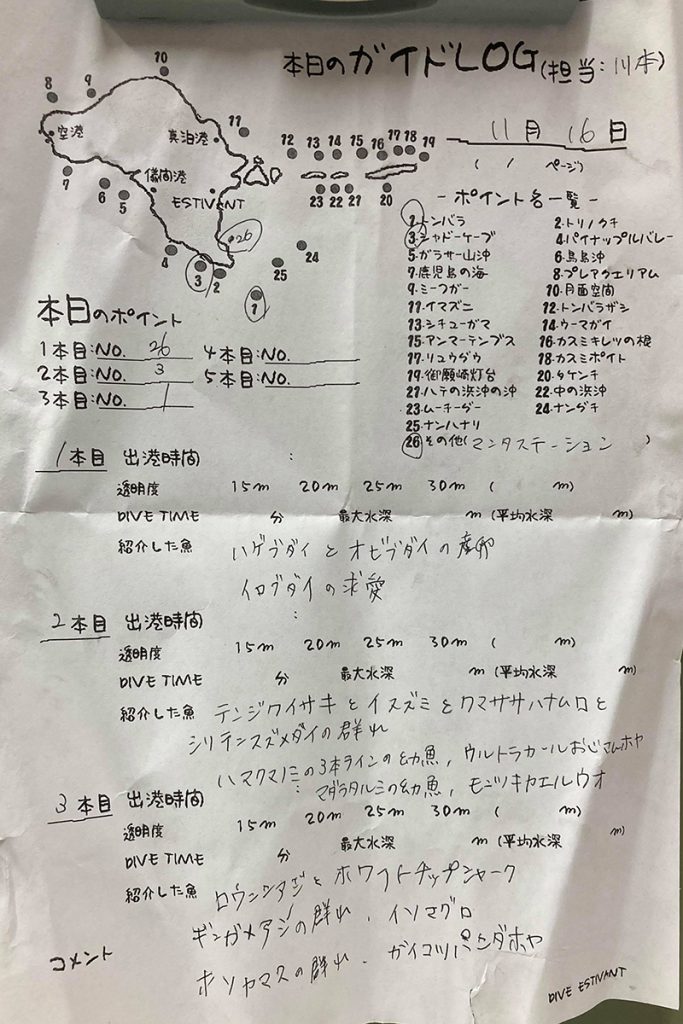 本日のガイドLOG(担当:川本)
11月 16日
( / ページ)
8
9
10
空港
真泊港
11
12
13
14
15
16
17
18
19
7
6
5
儀間港
ESTIVANT
23
22
21
20
26
24
4
3
2
25
1
-ポイント名一覧-
1.トンバラ 2.トリノクチ
3.シャドーケーブ 4.パイナップルバレー
5.ガラサー山沖 6.鳥島沖
7.鹿児島の海 8.プレアクエリアム
9.ミーフガー 10.月面空間
11.イマズニ 12.トンバラザシ
13.シチューガマ 14.ウーマガイ
15.アンマーテンブス 16.カスミキレツの根
17.リュウダウ 18.カスミポイト
19.御願崎灯台 20.タケンチ
21.ハテの浜沖の沖 22.中の浜沖
23.ムーチーダー 24.ナンダチ
25.ナンハナリ
26.その他(マンタステーション )
本日のポイント
1本目:NO. 26 4本目:NO.
2本目:NO. 3 5本目:NO.
3本目:NO. 1
1本目 出港時間 :
透明度 15m 20m 25m 30m ( m)
DIVE TIME 分 最大水深 m(平均水深 m)
紹介した魚 ハゲブダイとオビブダイの産卵
イロブダイの求愛
2本目 出港時間 :
透明度 15m 20m 25m 30m ( m)
DIVE TIME 分 最大水深 m(平均水深 m)
紹介した魚 テンジクイサキとイスズミとクマササハナムロと
シリテンスズメダイの群れ
ハマクマノミの3本ラインの幼魚, ウルトラカールおじさんホヤ
マダラタルミの幼魚, モンツキカエルウオ
3本目 出港時間 :
透明度 15m 20m 25m 30m ( m)
DIVE TIME 分 最大水深 m(平均水深 m)
紹介した魚 ロウニンアジとホワイトチップシャーク
ギンガメアジの群れ、イソマグロ
コメント
ホソカマスの群れ、ガイコツパンダホヤ
DIVE ESTIVANT